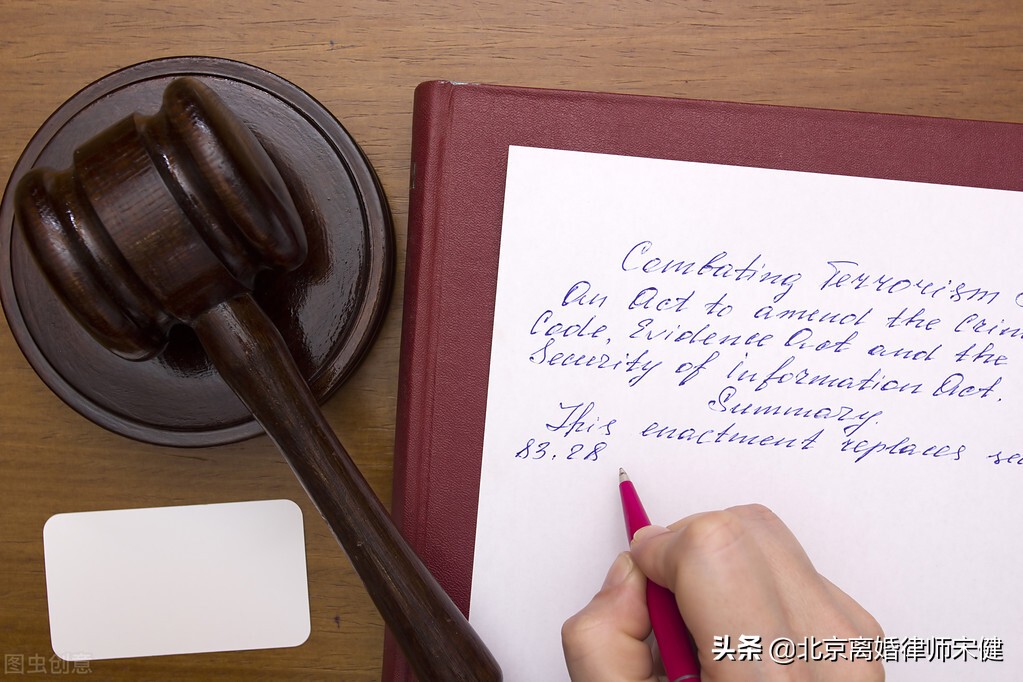 Combating Terrorism
An Act to amend the Crim
Code, Evidence Act and the
Security of information Act.
Summary.
This enactment replaces se
83.28
头条 @北京离婚律师宋健
图虫创意